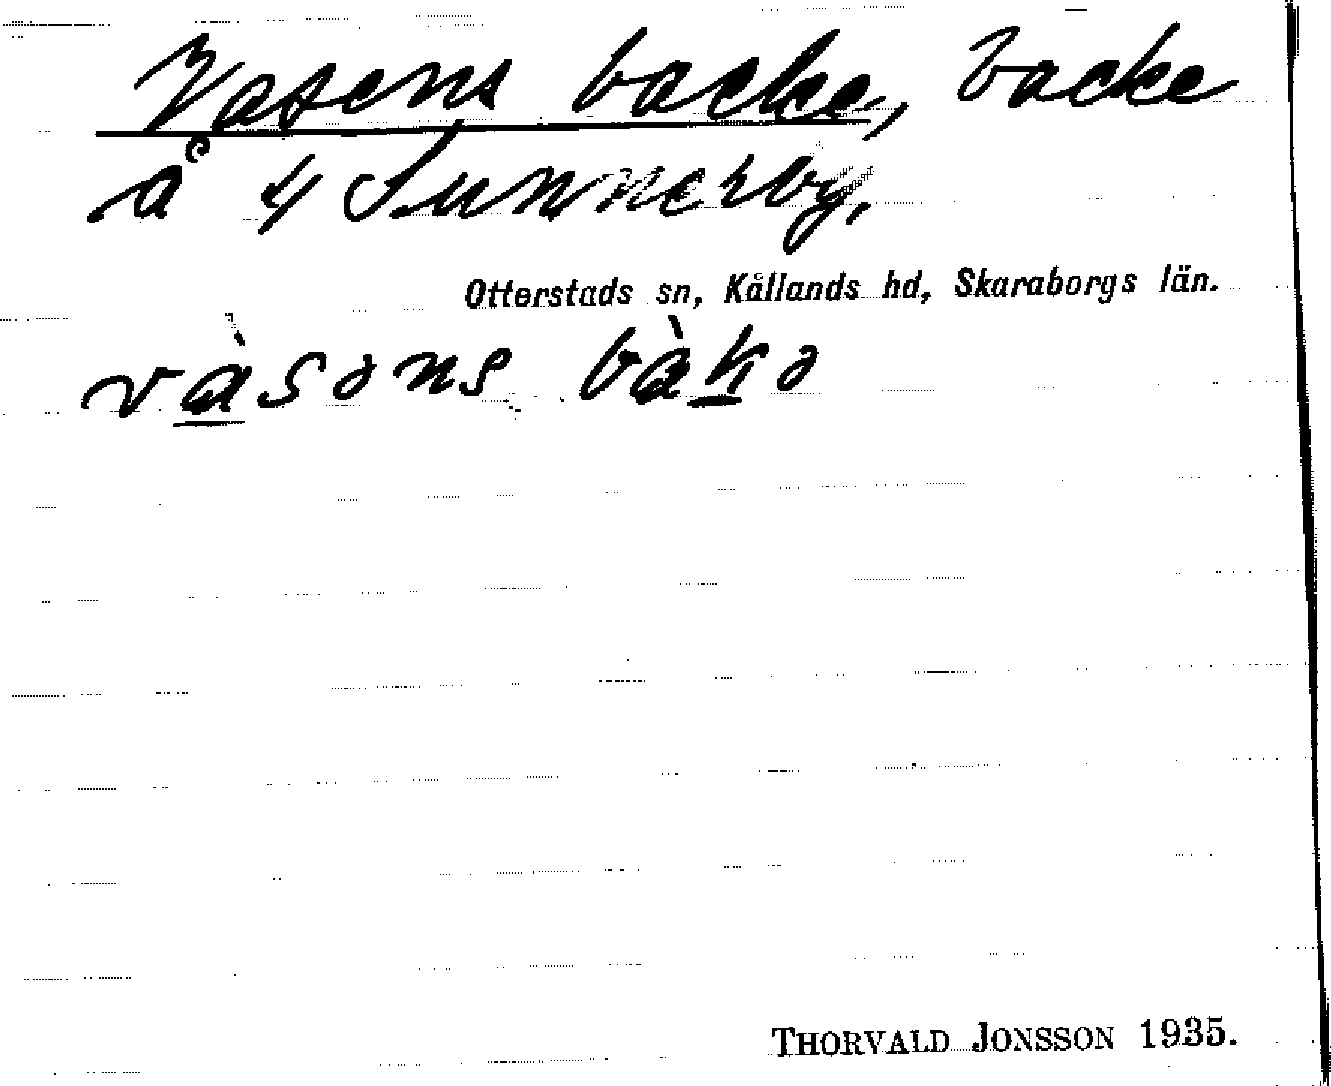 Vasens backe, backe
å 4 Sunnerby,
Otterstads sn, Kållands hd, Skaraborgs län.
vàsəns bàkə
THORVALD JONSSON 1935.